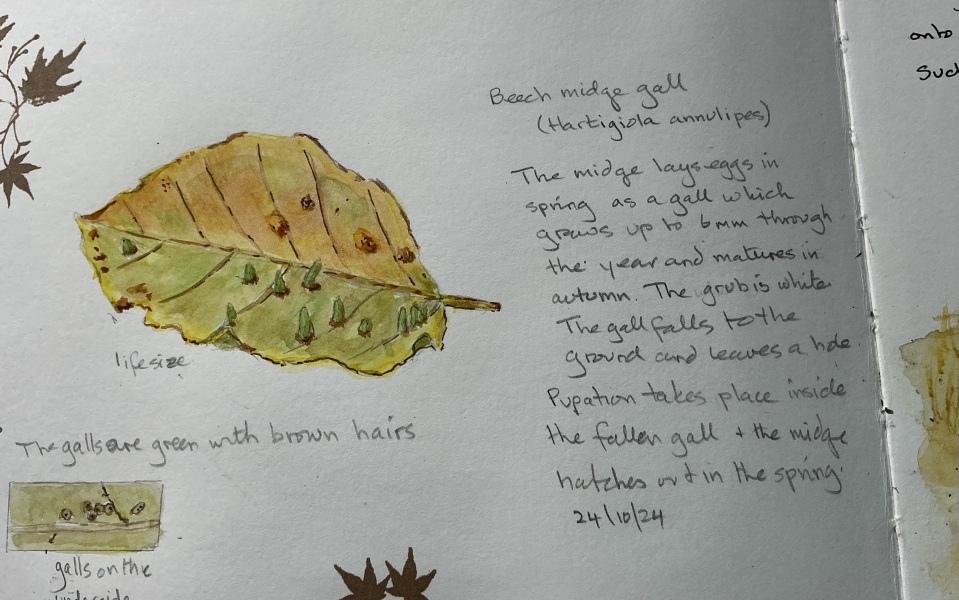 Beech midge gall
(Hartigiola annulipes)
The midge lays eggs in
spring as a gall which
grows up to 6mm through
the year and matures in
autumn. The grub is white
The gall falls to the
ground and leaves a hole.
Pupation takes place inside
the fallen gall + the midge
hatches out in the spring.
24/10/24
life size
The galls are green with brown hairs
galls on the
underside
onto